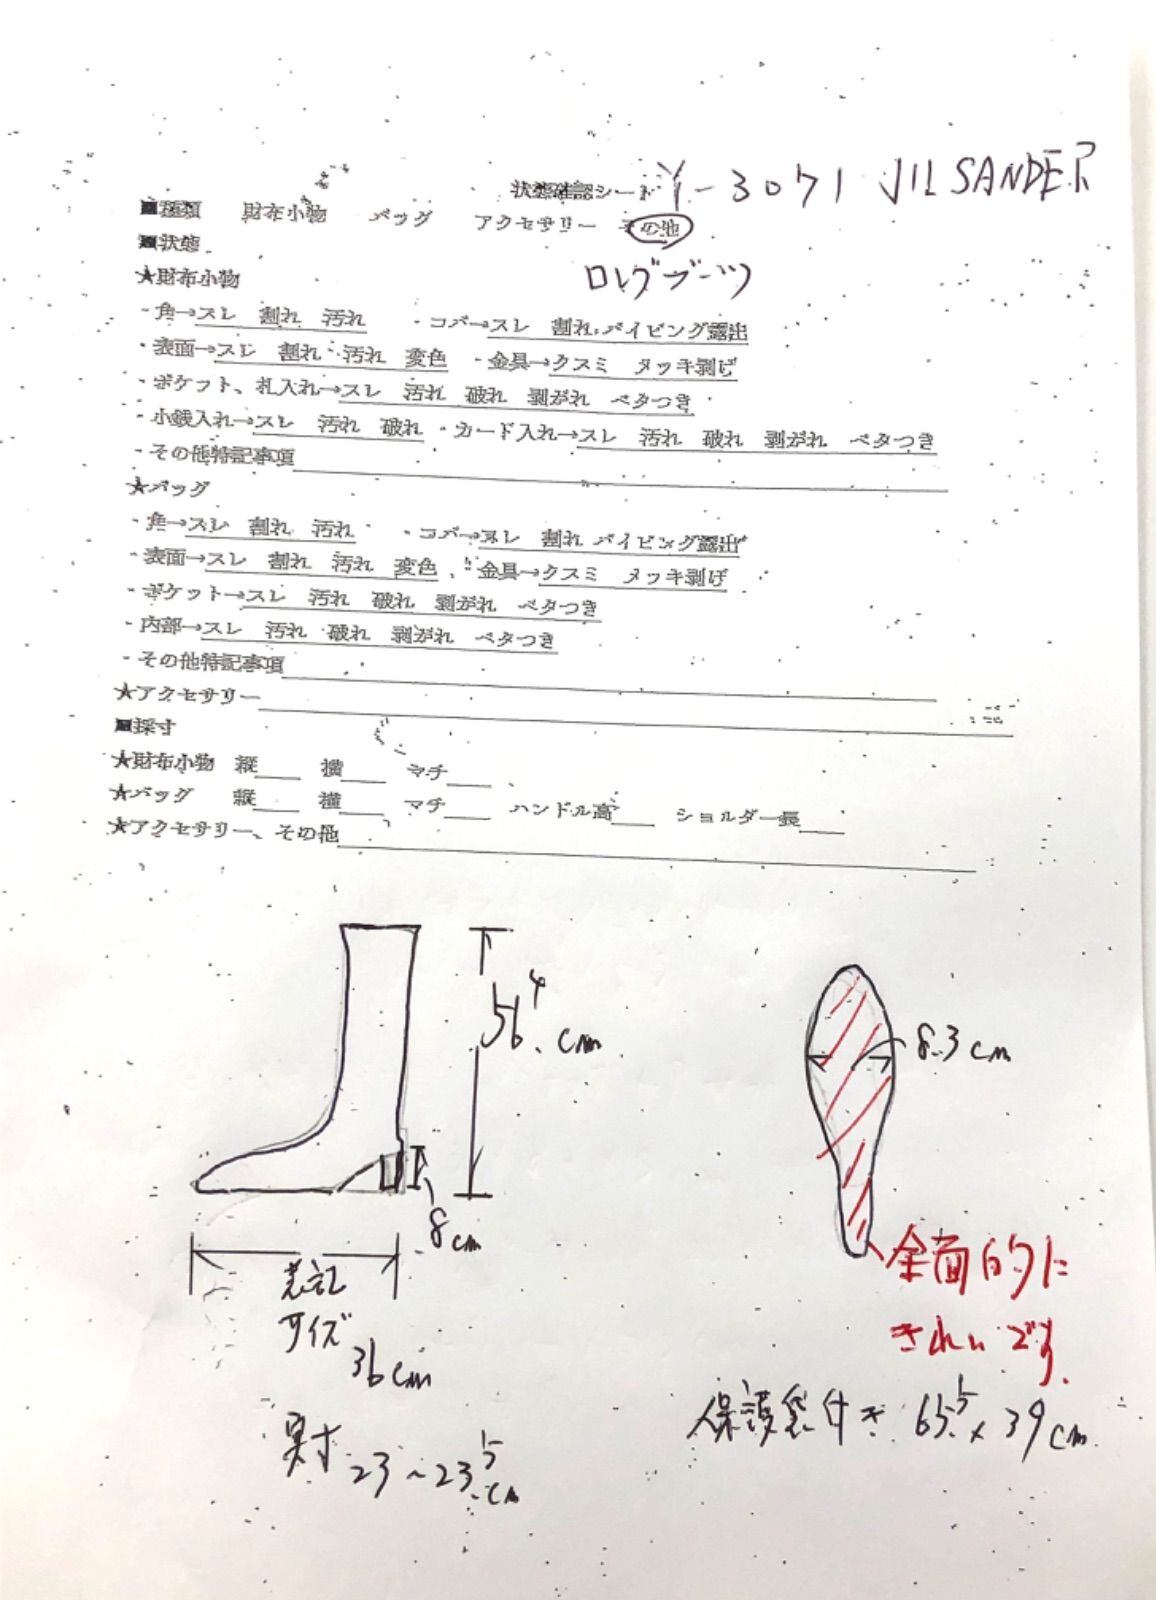 状態確認シート Y-3071 JIL SANDER
■種類 財布小物 バッグ アクセサリー その他
■状態
ロングブーツ
★財布小物
・角→スレ 割れ 汚れ ・コバ→スレ 割れ パイピング露出
・表面→スレ 割れ 汚れ 変色 ・金具→クスミ メッキ剥げ
・ポケット、札入れ→スレ 汚れ 破れ 剥がれ ベタつき
・小銭入れ→スレ 汚れ 破れ ・カード入れ→スレ 汚れ 破れ 剥がれ ベタつき
・その他特記事項
★バッグ
・角→スレ 割れ 汚れ ・コバ→スレ 割れ パイピング露出
・表面→スレ 割れ 汚れ 変色 ・金具→クスミ メッキ剥げ
・ポケット→スレ 汚れ 破れ 剥がれ ベタつき
・内部→スレ 汚れ 破れ 剥がれ ベタつき
・その他特記事項
★アクセサリー
■採寸
★財布小物 縦 横 マチ
★バッグ 縦 横 マチ ハンドル高 ショルダー長
★アクセサリー、その他
56.4cm
8.3cm
8cm
表記
サイズ
36cm
実寸 23~23.5cm
全面的に
きれいです.
保護袋付き 65.5×39cm